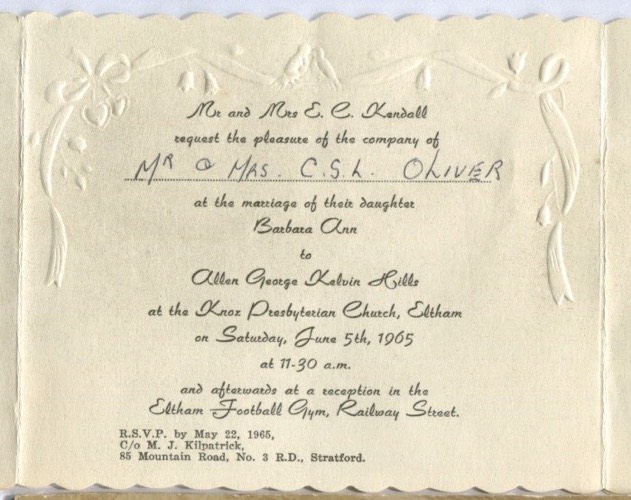 Mr and Mrs E. C. Kendall
request the pleasure of the company of
MR & MRS. C.S.L. OLIVER
at the marriage of their daughter
Barbara Ann
to
Allen George Kelvin Hills
at the Knox Presbyterian Church, Eltham
on Saturday, June 5th, 1965
at 11-30 a.m.
and afterwards at a reception in the
Eltham Football Gym, Railway Street.
R.S.V.P. by May 22, 1965,
C/o M. J. Kilpatrick,
85 Mountain Road, No. 3 R.D., Stratford.